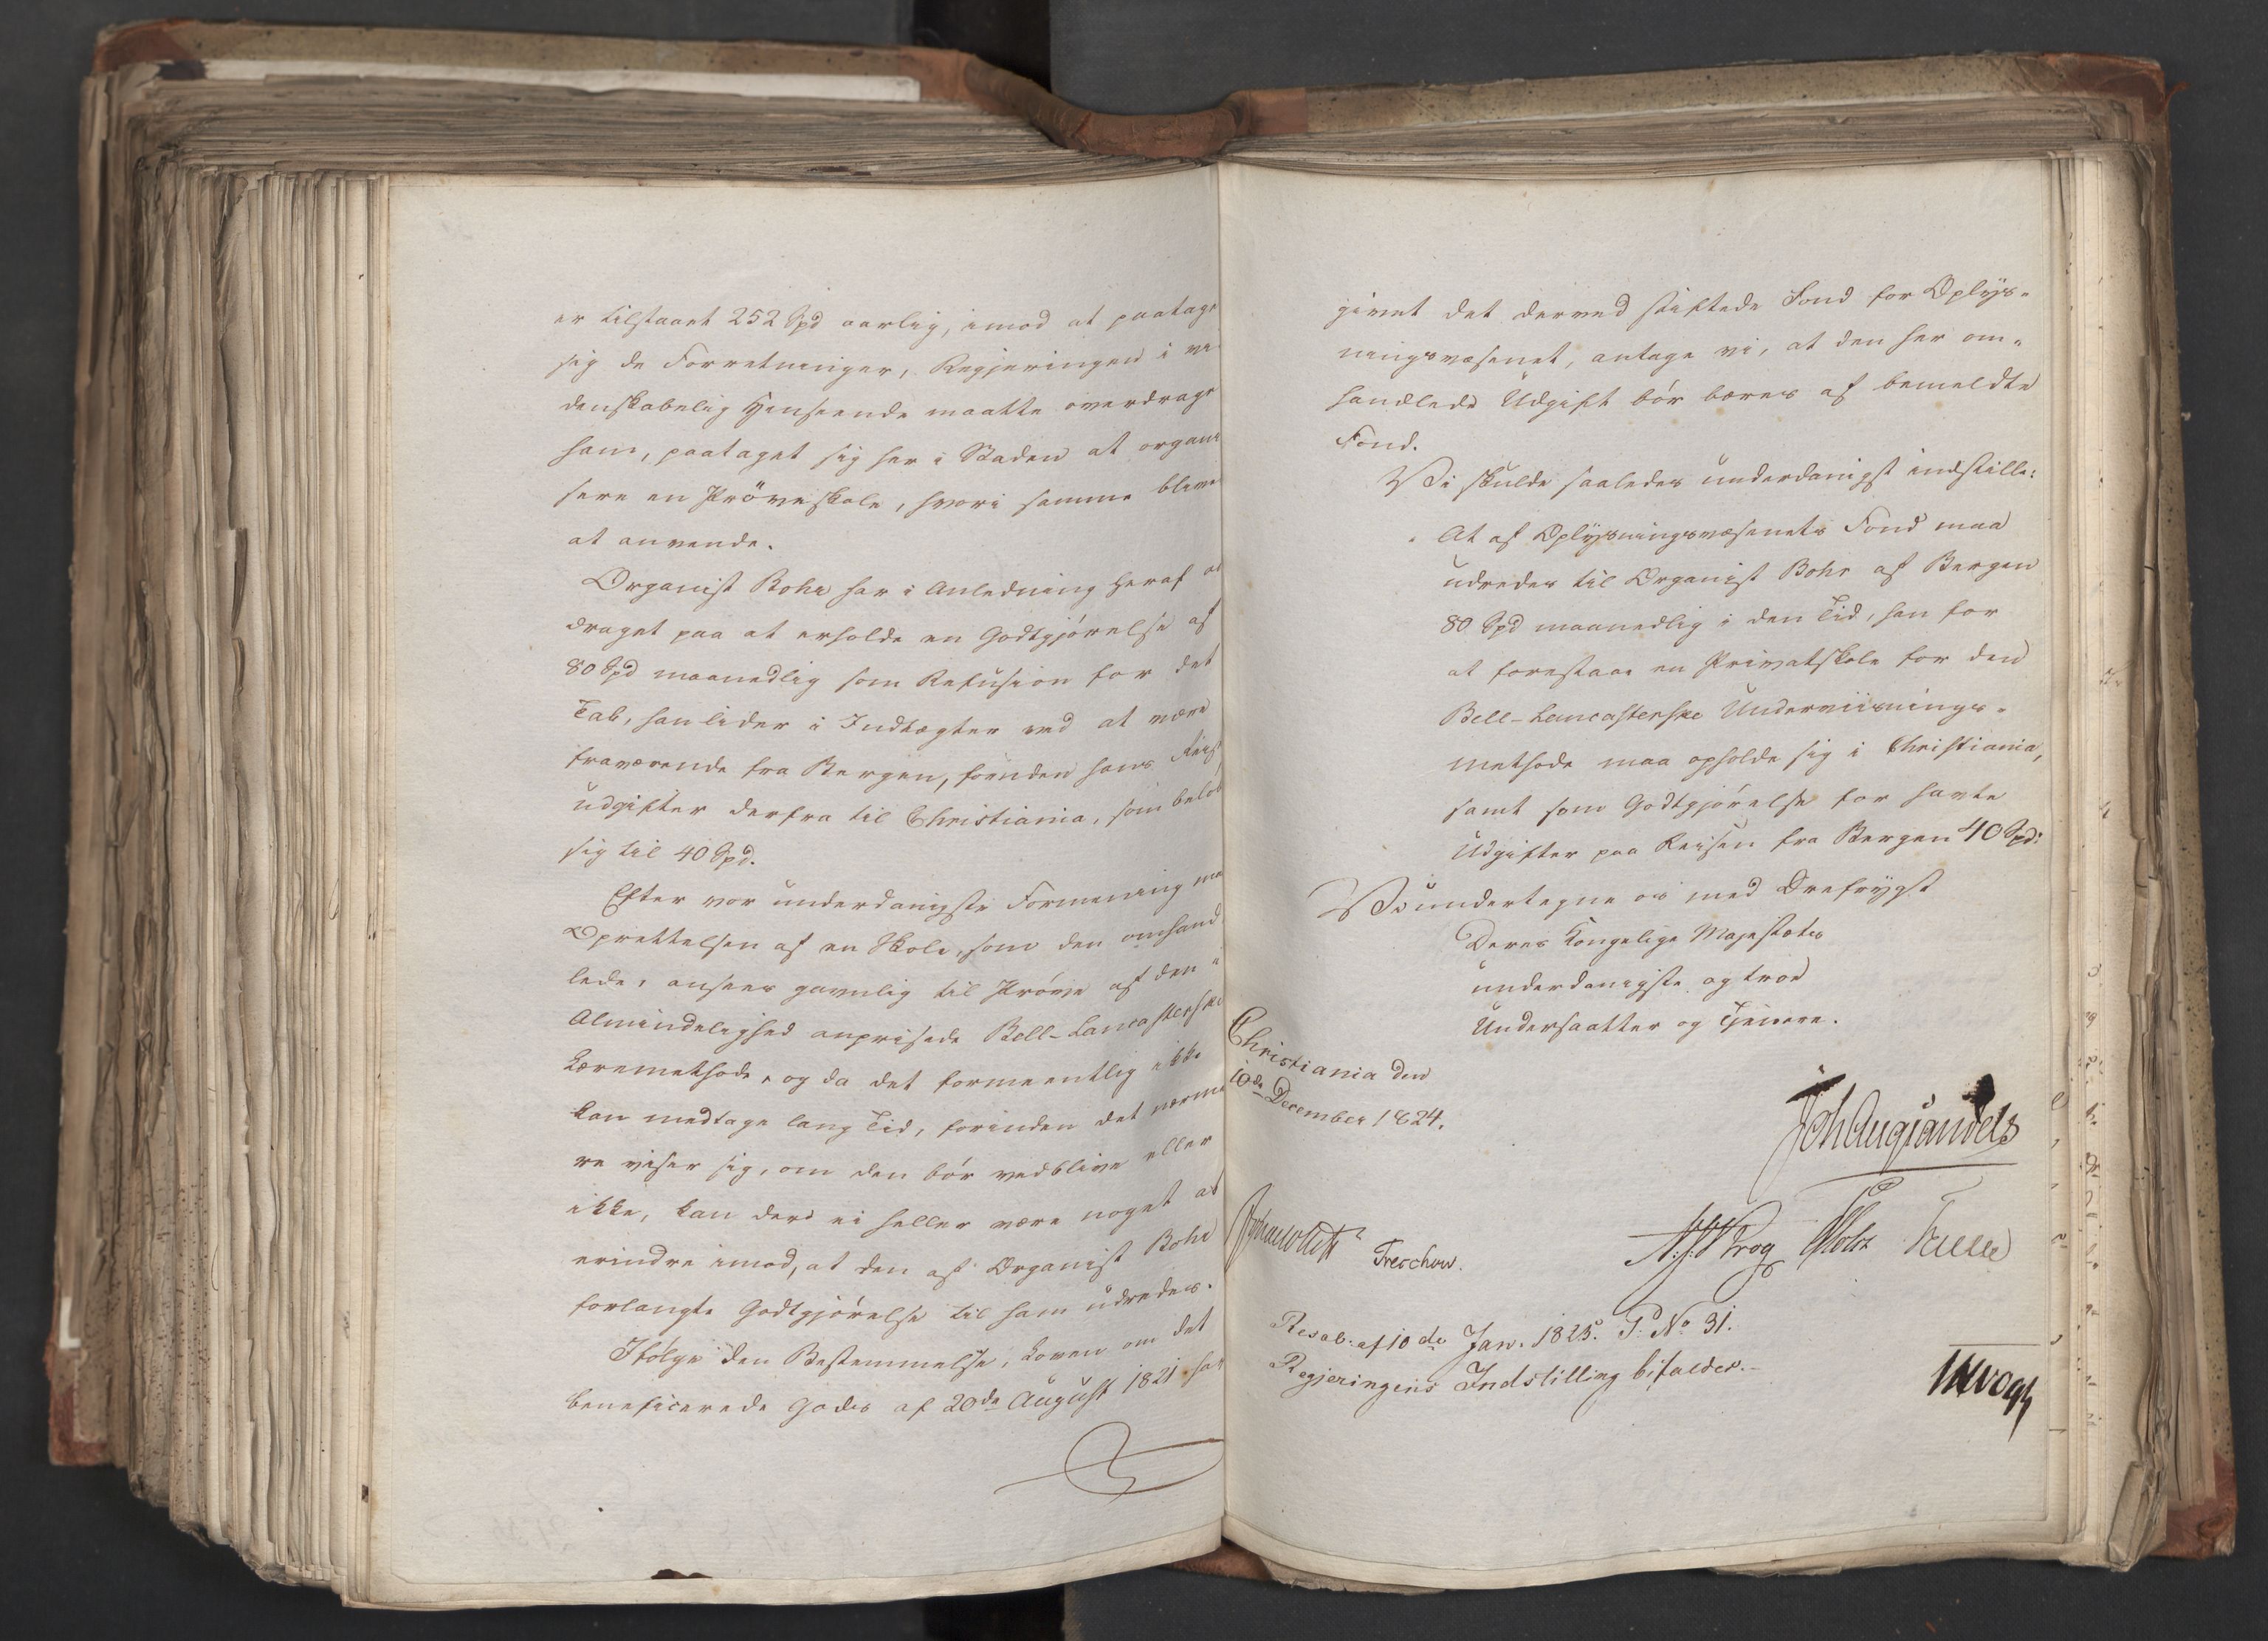 er tilstaaet 252 Spd aarlig, imod at paatage
sig de Forretninger, Regjeringen i vi
denskabelig Henseende maatte overdrage
ham, paataget sig her i Staden at organi
sere en Pröveskole, hvori samme bliver
at anvende.
Organist Bohr har i Anledning heraf an
draget paa at erholde en Godtgjørelse af
80 Spd maanedlig som Refusion for det
Tab, han lider i Indtægter ved at være
fraværende fra Bergen, foruden hans Reise
udgifter derfra til Christiania, som beløb
sig til 40 Spd.
Efter vor underdanigste Formening maa
Oprettelsen af en Skole, som den omhand
lede, ansees gavnlig til Prøve af den i
Almindelighed anprisede Bell-Lancasterske
Læremethode, og da det formeentlig ikke
kan medtage lang Tid, forinden det nærme
re viser sig, om den bør vedblive eller
ikke, kan der ei heller være noget at
erindre imod, at den af Organist Bohr
forlangte Godtgjørelse til ham udredes.
Ifølge den Bestemmelse, Loven om det
beneficerede Gods af 20de August 1821 har
givet det derved stiftede Fond for Oplys-
ningsvæsenet, antage vi, at den her om-
handlede Udgift bør bæres af bemeldte
Fond.
Vi skulde saaledes underdanigst indstille:
At af Oplysningsvæsenets Fond maa
udredes til Organist Bohr af Bergen
80 Spd maanedlig i den Tid, han for
at forestaae en Privatskole for den
Bell-Lancasterske Underviisnings-
methode maa opholde sig i Christiania,
samt som Godtgjørelse for havte
Udgifter paa Reisen fra Bergen 40 Spd:
Vi undertegne os med Ærefrygt
Deres Kongelige Majestæts
underdanigste og troe
Undersaatter og Tjenere.
Christiania den
10de December 1824.
Joh Aug Sandels
Jonas Collett Treschow.
Motz
Resol: af 10de Jan. 1825. P: No 31.
Regjeringens Indstilling bifaldes.
Vogt